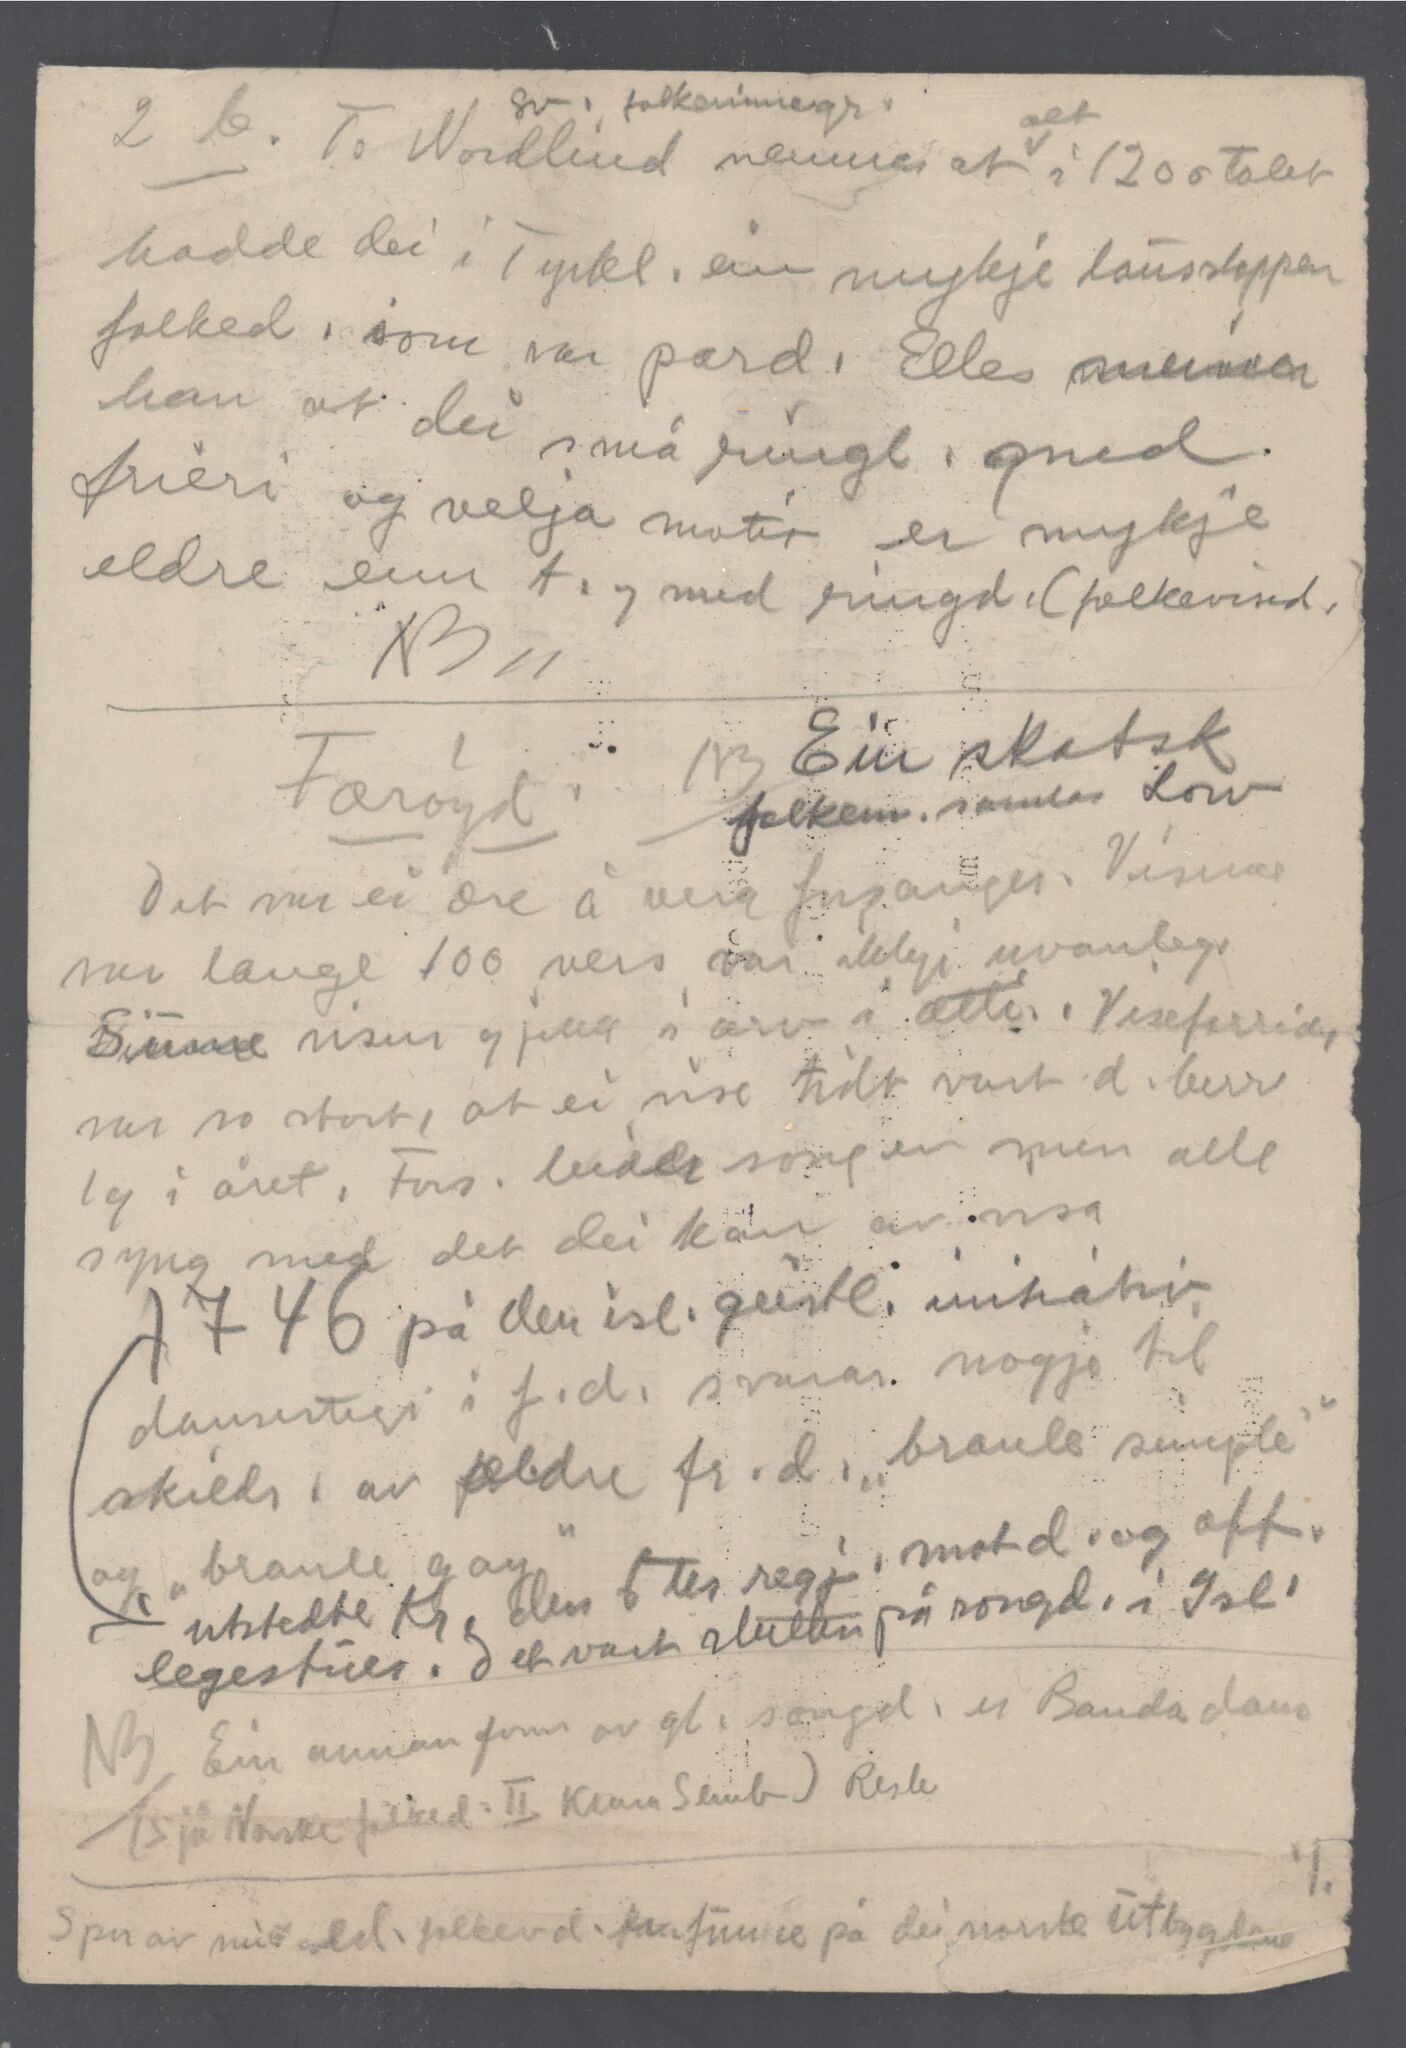 sv. folkeminnegr.
2 b. To Nordlind nemner at alt i 1200 talet
hadde dei i Tyskl. ein mykje laussloppen
folked. som var pard. Elles meiner
han at dei små ringl. med
frieri og velja motiv er mykje
eldre enn t. og med ringd. (folkevised.)
NB 11
Færøyd. NB Ein skotsk
folkem. samlar Low
Det var ei ære å vera forsanger. Visune
var lange 100 vers var ikkje uvanleg.
Sume visur gjekk i arv i ætti. Viseforrådet
var so stort, at ei vise tidt vart d. berr
1 g i året. Fors. leider songen men alle
syng med det dei kan av visa
1746 på den isl. geistl. initiativ
dansestegi i f.d. svarar nogje til
skildr. av eldre fr. d. „branle simple"
og „branle gay"
utstedte Kr. den 6tes regj. mot d. og off.
legestues. Det vart slutten på songd. i Isl.
NB Ein annan form av gl. songd. er Bandadans
(Sjå Norske folked. II Klara Semb) Reste
1.
Spor av mid. ald. folkevd. finne på dei norske Utbygdene